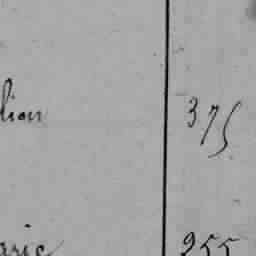 lion 375
arie 255